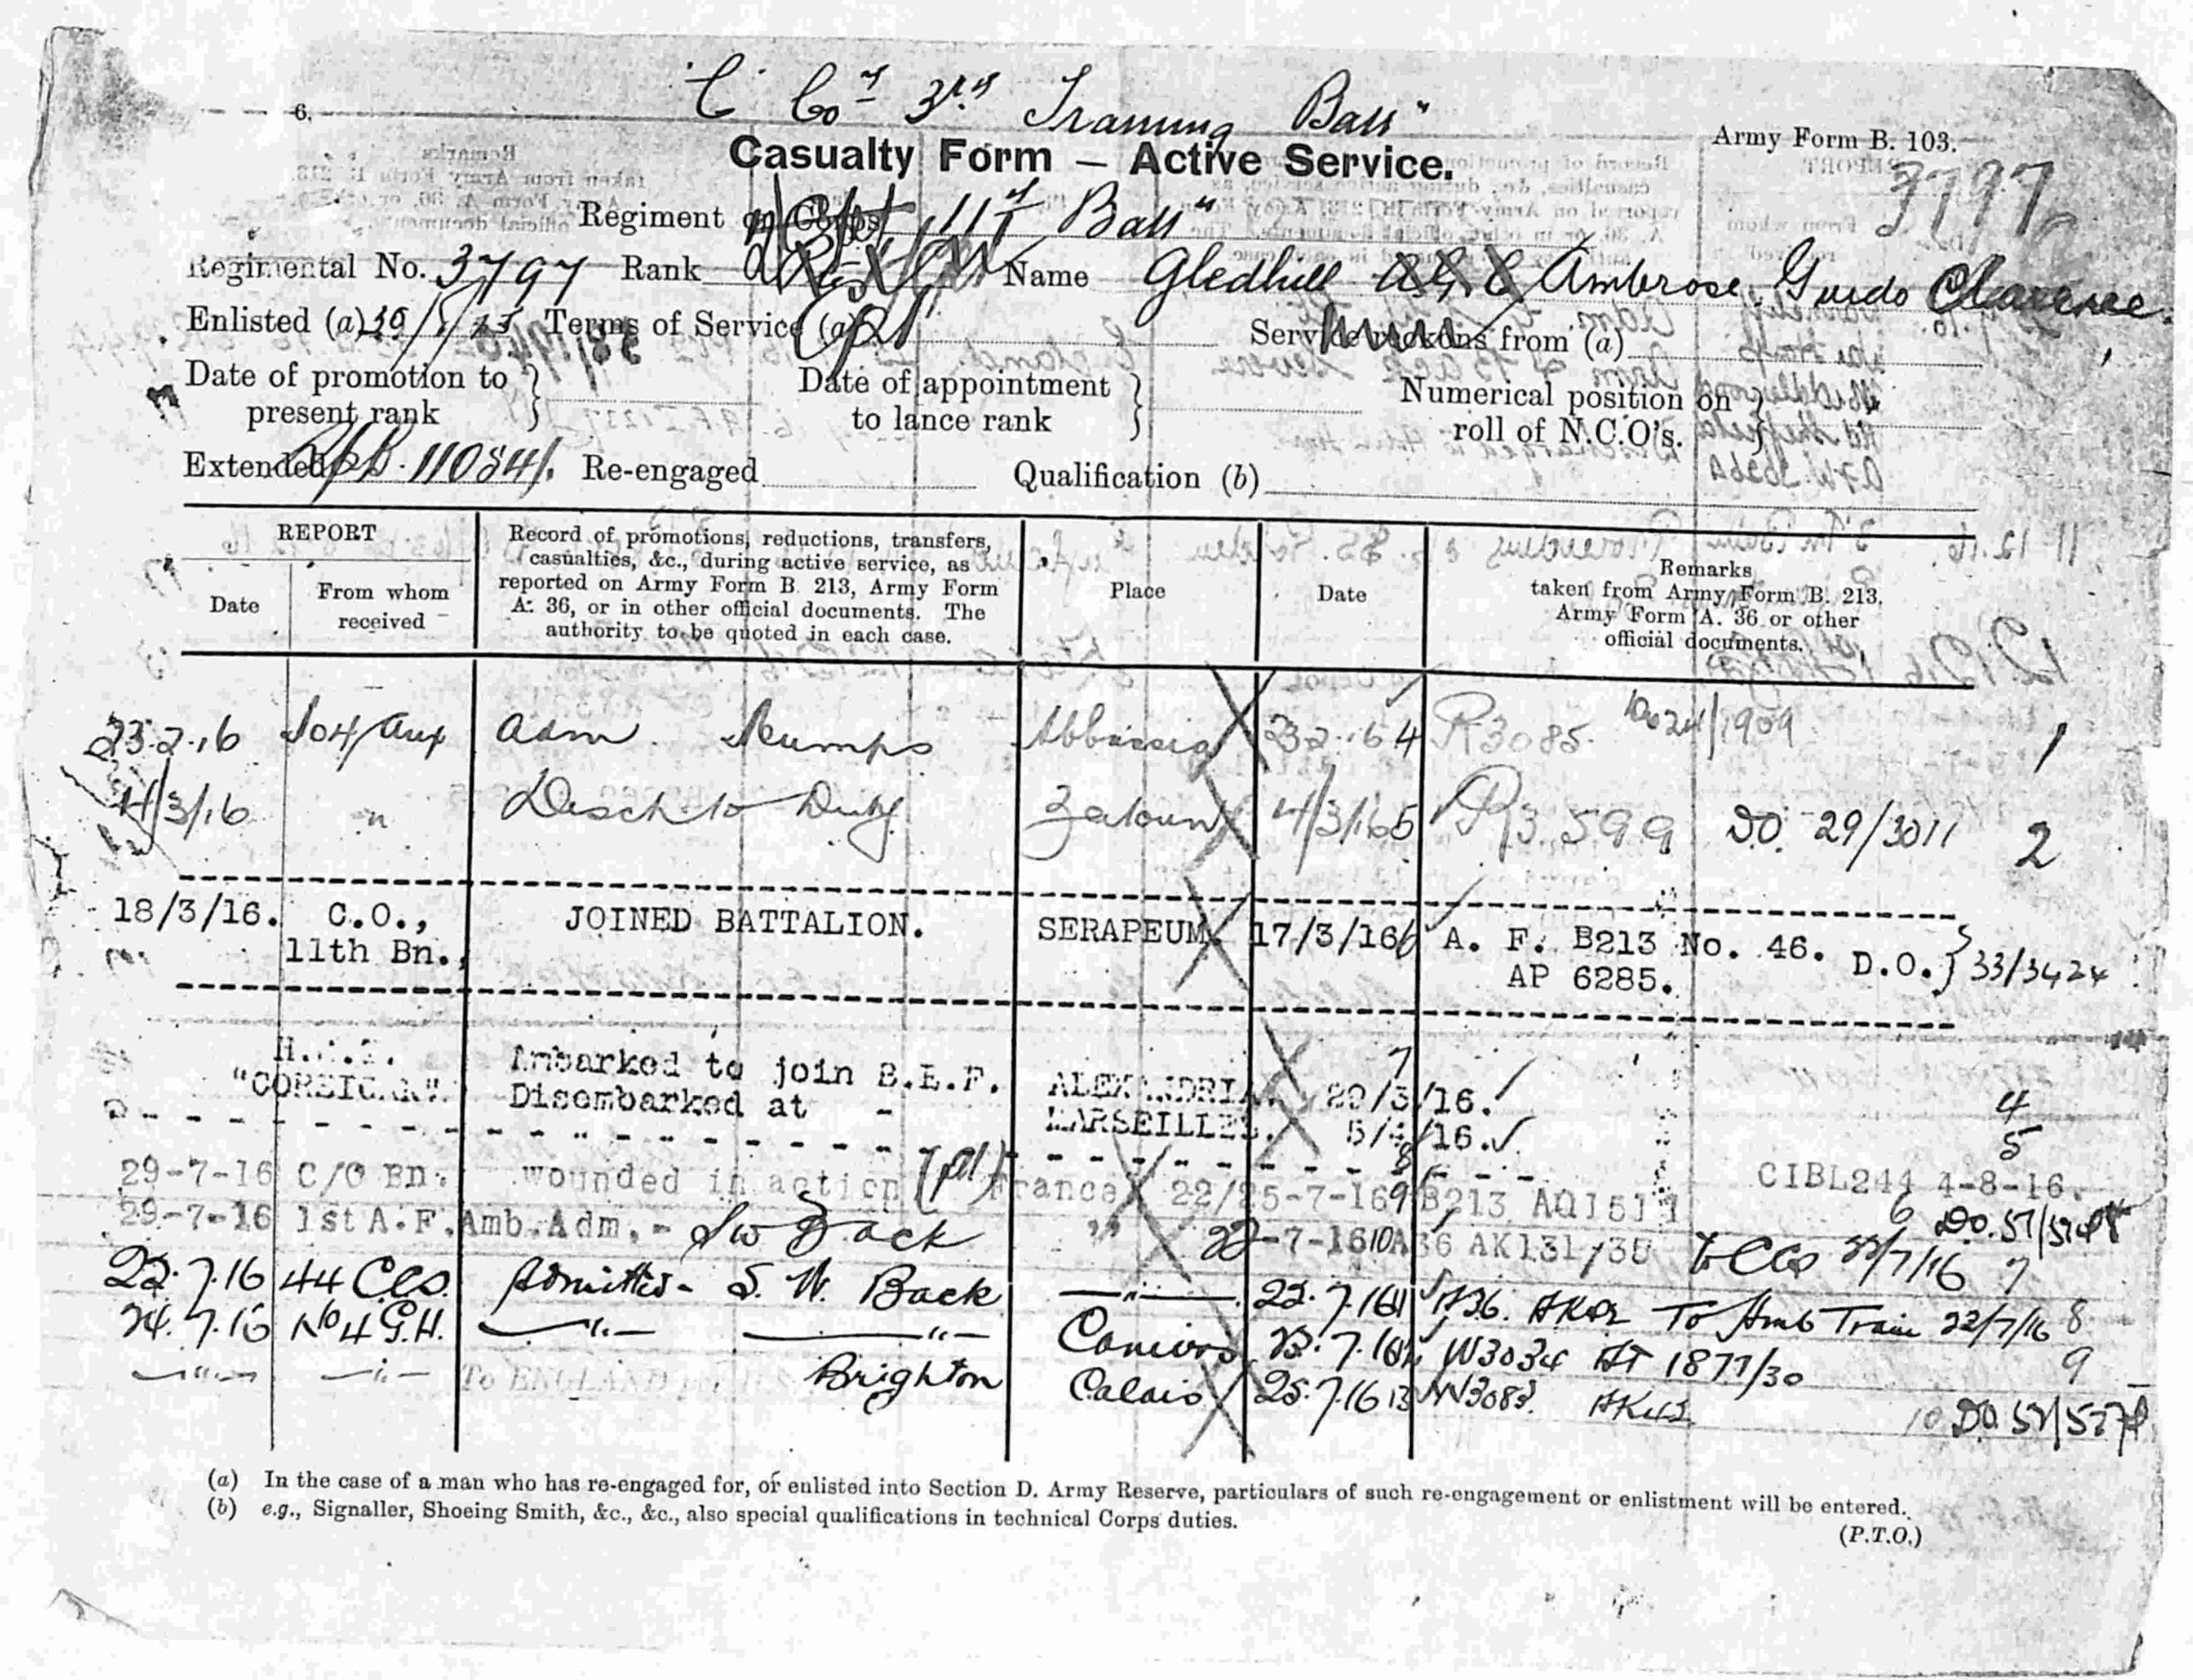 "C" Coy 3rd Training Batt"
6.
Army Form B. 103.
Casualty Form — Active Service.
3797
Regiment or Corps 11th Batt"
Regimental No. 3797 Rank Name Gledhill A.G.C Ambrose Guido Clarence
Enlisted (a) Terms of Service (a) Service reckons from (a)
Date of promotion to present rank } Date of appointment to lance rank } Numerical position on roll of N.C.O's. }
Extended 11084/. Re-engaged Qualification (b)
REPORT
Date
From whom received
Record of promotions, reductions, transfers, casualties, &c., during active service, as reported on Army Form B. 213, Army Form A. 36, or in other official documents. The authority to be quoted in each case.
Place
Date
Remarks taken from Army Form B. 213, Army Form A. 36 or other official documents.
23.2.16 Adm Mumps Abbassia 23 2.16 4 R3085. 24/1909 1
4/3/16 " Disch. to Duty Zeitoun 4/3/16 5 R3599 DO. 29/3011 2
18/3/16. C.O., JOINED BATTALION. SERAPEUM. 17/3/16 6 A. F. B213 No. 46. D.O. } 33/3424
11th Bn., AP 6285.
"CORSICAN". Embarked to join B.E.F. ALEXANDRIA. 7 29/3/16. 4
Disembarked at - MARSEILLES. 5/4/16. 5
8
29-7-16 C/O Bn. wounded in action France 22/25-7-16 9 B213 AQ1511 CIBL244 4-8-16.
29-7-16 1st A.F.Amb. Adm. - SW Back " 22-7-16 10 A36 AK131/35 to CCS 22/7/16 6 7
22.7.16 44 CCS. Admitted - S. W. Back —"— 22.7.16 11 A36. To Amb Train 22/7/16 8
24.7.16 No 4 G.H. —"— —"— Camiers 23.7.16 12 W3034 AT 1877/30 9
—"— —"— To ENGLAND Brighton Calais 25.7.16 13 W3083. 10 DO.
(a) In the case of a man who has re-engaged for, or enlisted into Section D. Army Reserve, particulars of such re-engagement or enlistment will be entered.
(b) e.g., Signaller, Shoeing Smith, &c., &c., also special qualifications in technical Corps duties.
(P.T.O.)